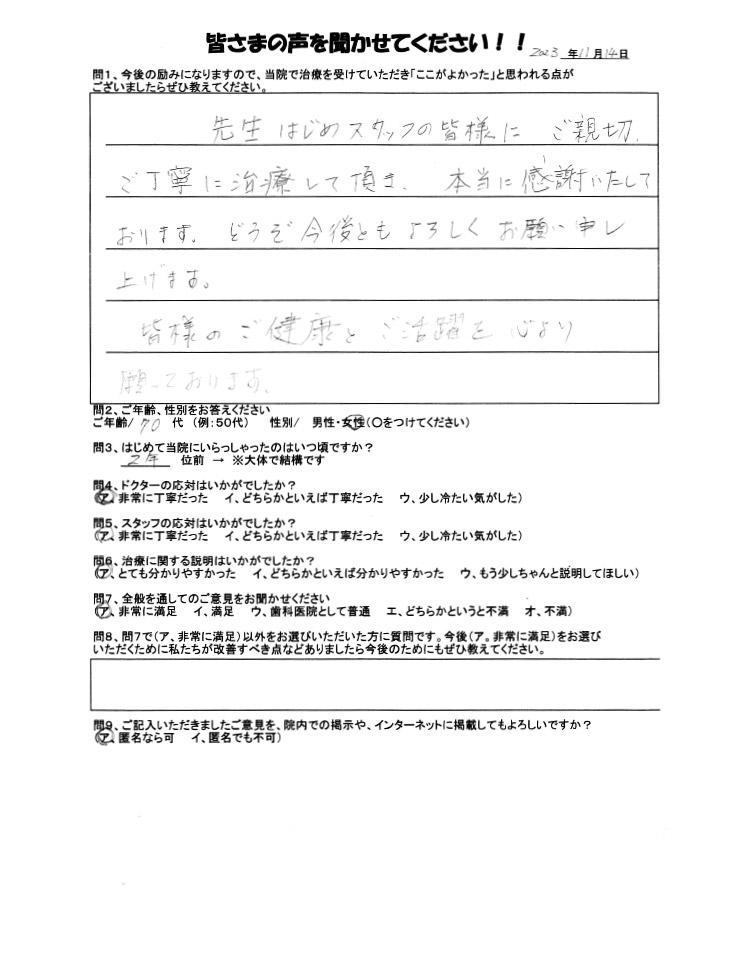 皆さまの声を聞かせてください！！
2023 年 11 月 14 日
問1、今後の励みになりますので、当院で治療を受けていただき「ここがよかった」と思われる点が
ございましたらぜひ教えてください。
先生はじめスタッフの皆様に ご親切、
ご丁寧に治療して頂き、 本当に感謝いたして
おります。どうぞ今後ともよろしくお願い申し
上げます。
皆様のご健康とご活躍を心より
願っております。
問2、ご年齢、性別をお答えください
ご年齢/ 70 代 （例：50代） 性別/ 男性・女性（〇をつけてください）
問3、はじめて当院にいらっしゃったのはいつ頃ですか？
2年 位前 → ※大体で結構です
問4、ドクターの応対はいかがでしたか？
（ア、非常に丁寧だった イ、どちらかといえば丁寧だった ウ、少し冷たい気がした）
問5、スタッフの応対はいかがでしたか？
（ア、非常に丁寧だった イ、どちらかといえば丁寧だった ウ、少し冷たい気がした）
問6、治療に関する説明はいかがでしたか？
（ア、とても分かりやすかった イ、どちらかといえば分かりやすかった ウ、もう少しちゃんと説明してほしい）
問7、全般を通してのご意見をお聞かせください
（ア、非常に満足 イ、満足 ウ、歯科医院として普通 エ、どちらかというと不満 オ、不満）
問8、問7で（ア、非常に満足）以外をお選びいただいた方に質問です。今後（ア。非常に満足）をお選び
いただくために私たちが改善すべき点などありましたら今後のためにもぜひ教えてください。
問9、ご記入いただきましたご意見を、院内での掲示や、インターネットに掲載してもよろしいですか？
（ア、匿名なら可 イ、匿名でも不可）